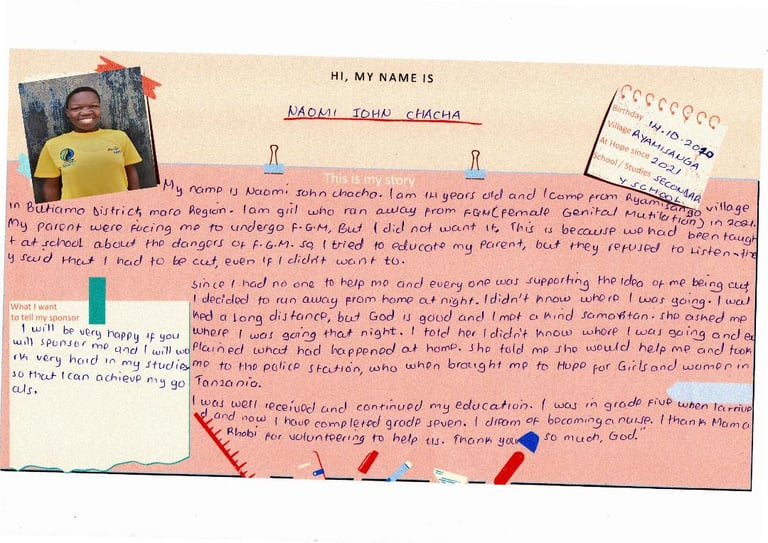 HI, MY NAME IS
NAOMI JOHN CHACHA
Birthday 14.10.2010
Village RYAMISANGA
At Hope since 2021
School / Studies SECONDAR
Y SCHOOL
This is my story
My name is Naomi John chacha. I am 14 years old and I come from Ryamisango village
in Butiama District, mara Region. I am girl who ran away from FGM(Female Genital Mutilation) in 2021.
My parent were focing me to undergo F.G.M, But I did not want it, This is because we had been taugh
t at school about the dangers of F.G.M. so, I tried to educate my parent, but they refused to Listen. the
y said that I had to be cut, even if I didn't want to.
since I had no one to help me and every one was supporting the idea of me being cut,
I decided to run away from home at night. I didn't know where I was going. I wal
ked a long distance, but God is good and I met a kind samaritan. she asked me
where I was going that night. I told her I didn't know where I was going and ex
plained what had happened at home. she told me she would help me and took
me to the police station, who when brought me to Hope for Girls and women in
Tanzania.
I was well received and continued my education. I was in grade five when I arrive
d, and now I have completed grade seven. I dream of becoming a nurse. I thank Mama
Rhobi for volunteering to help us. Thank you so much, God."
What I want
to tell my sponsor
I will be very happy if you
will sponsor me and I will wo
rk very hard in my studies
so that I can achieve my go
als.